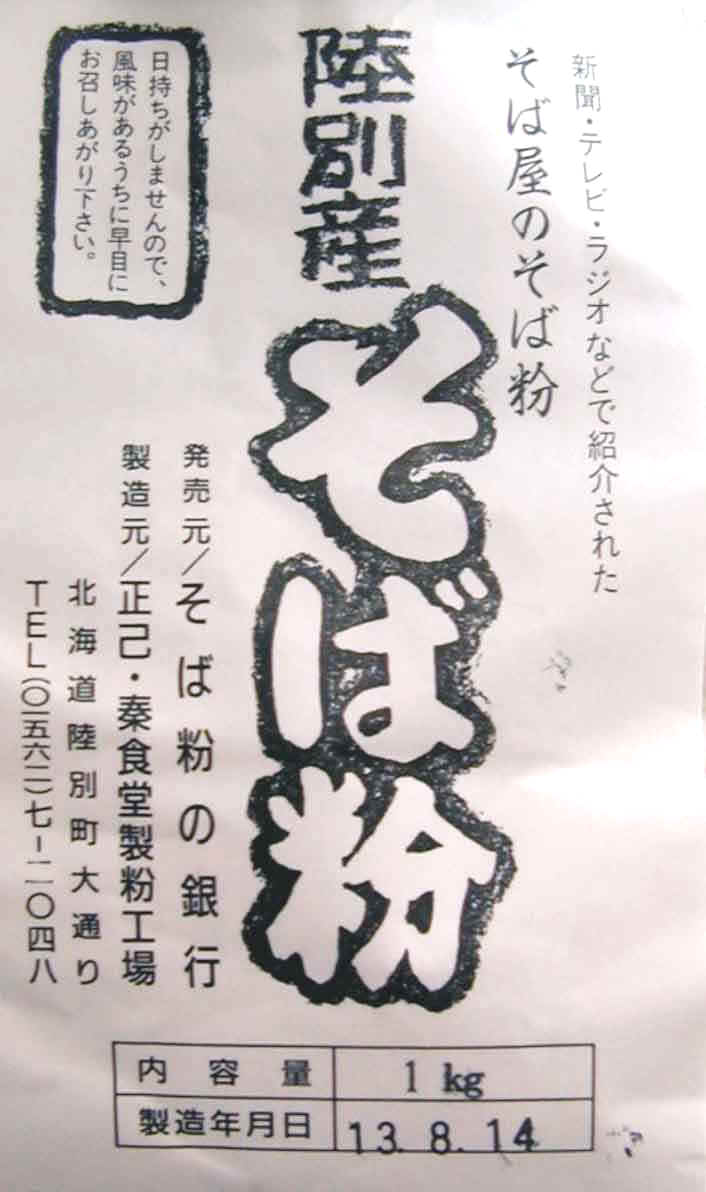 新聞・テレビ・ラジオなどで紹介された
そば屋のそば粉
陸別産
そば粉
日持ちがしませんので、
風味があるうちに早目に
お召しあがり下さい。
発売元/そば粉の銀行
製造元/正己・秦食堂製粉工場
北海道陸別町大通り
TEL(〇一五六二)七-二一〇四八
内容量 1 kg
製造年月日 13. 8. 14